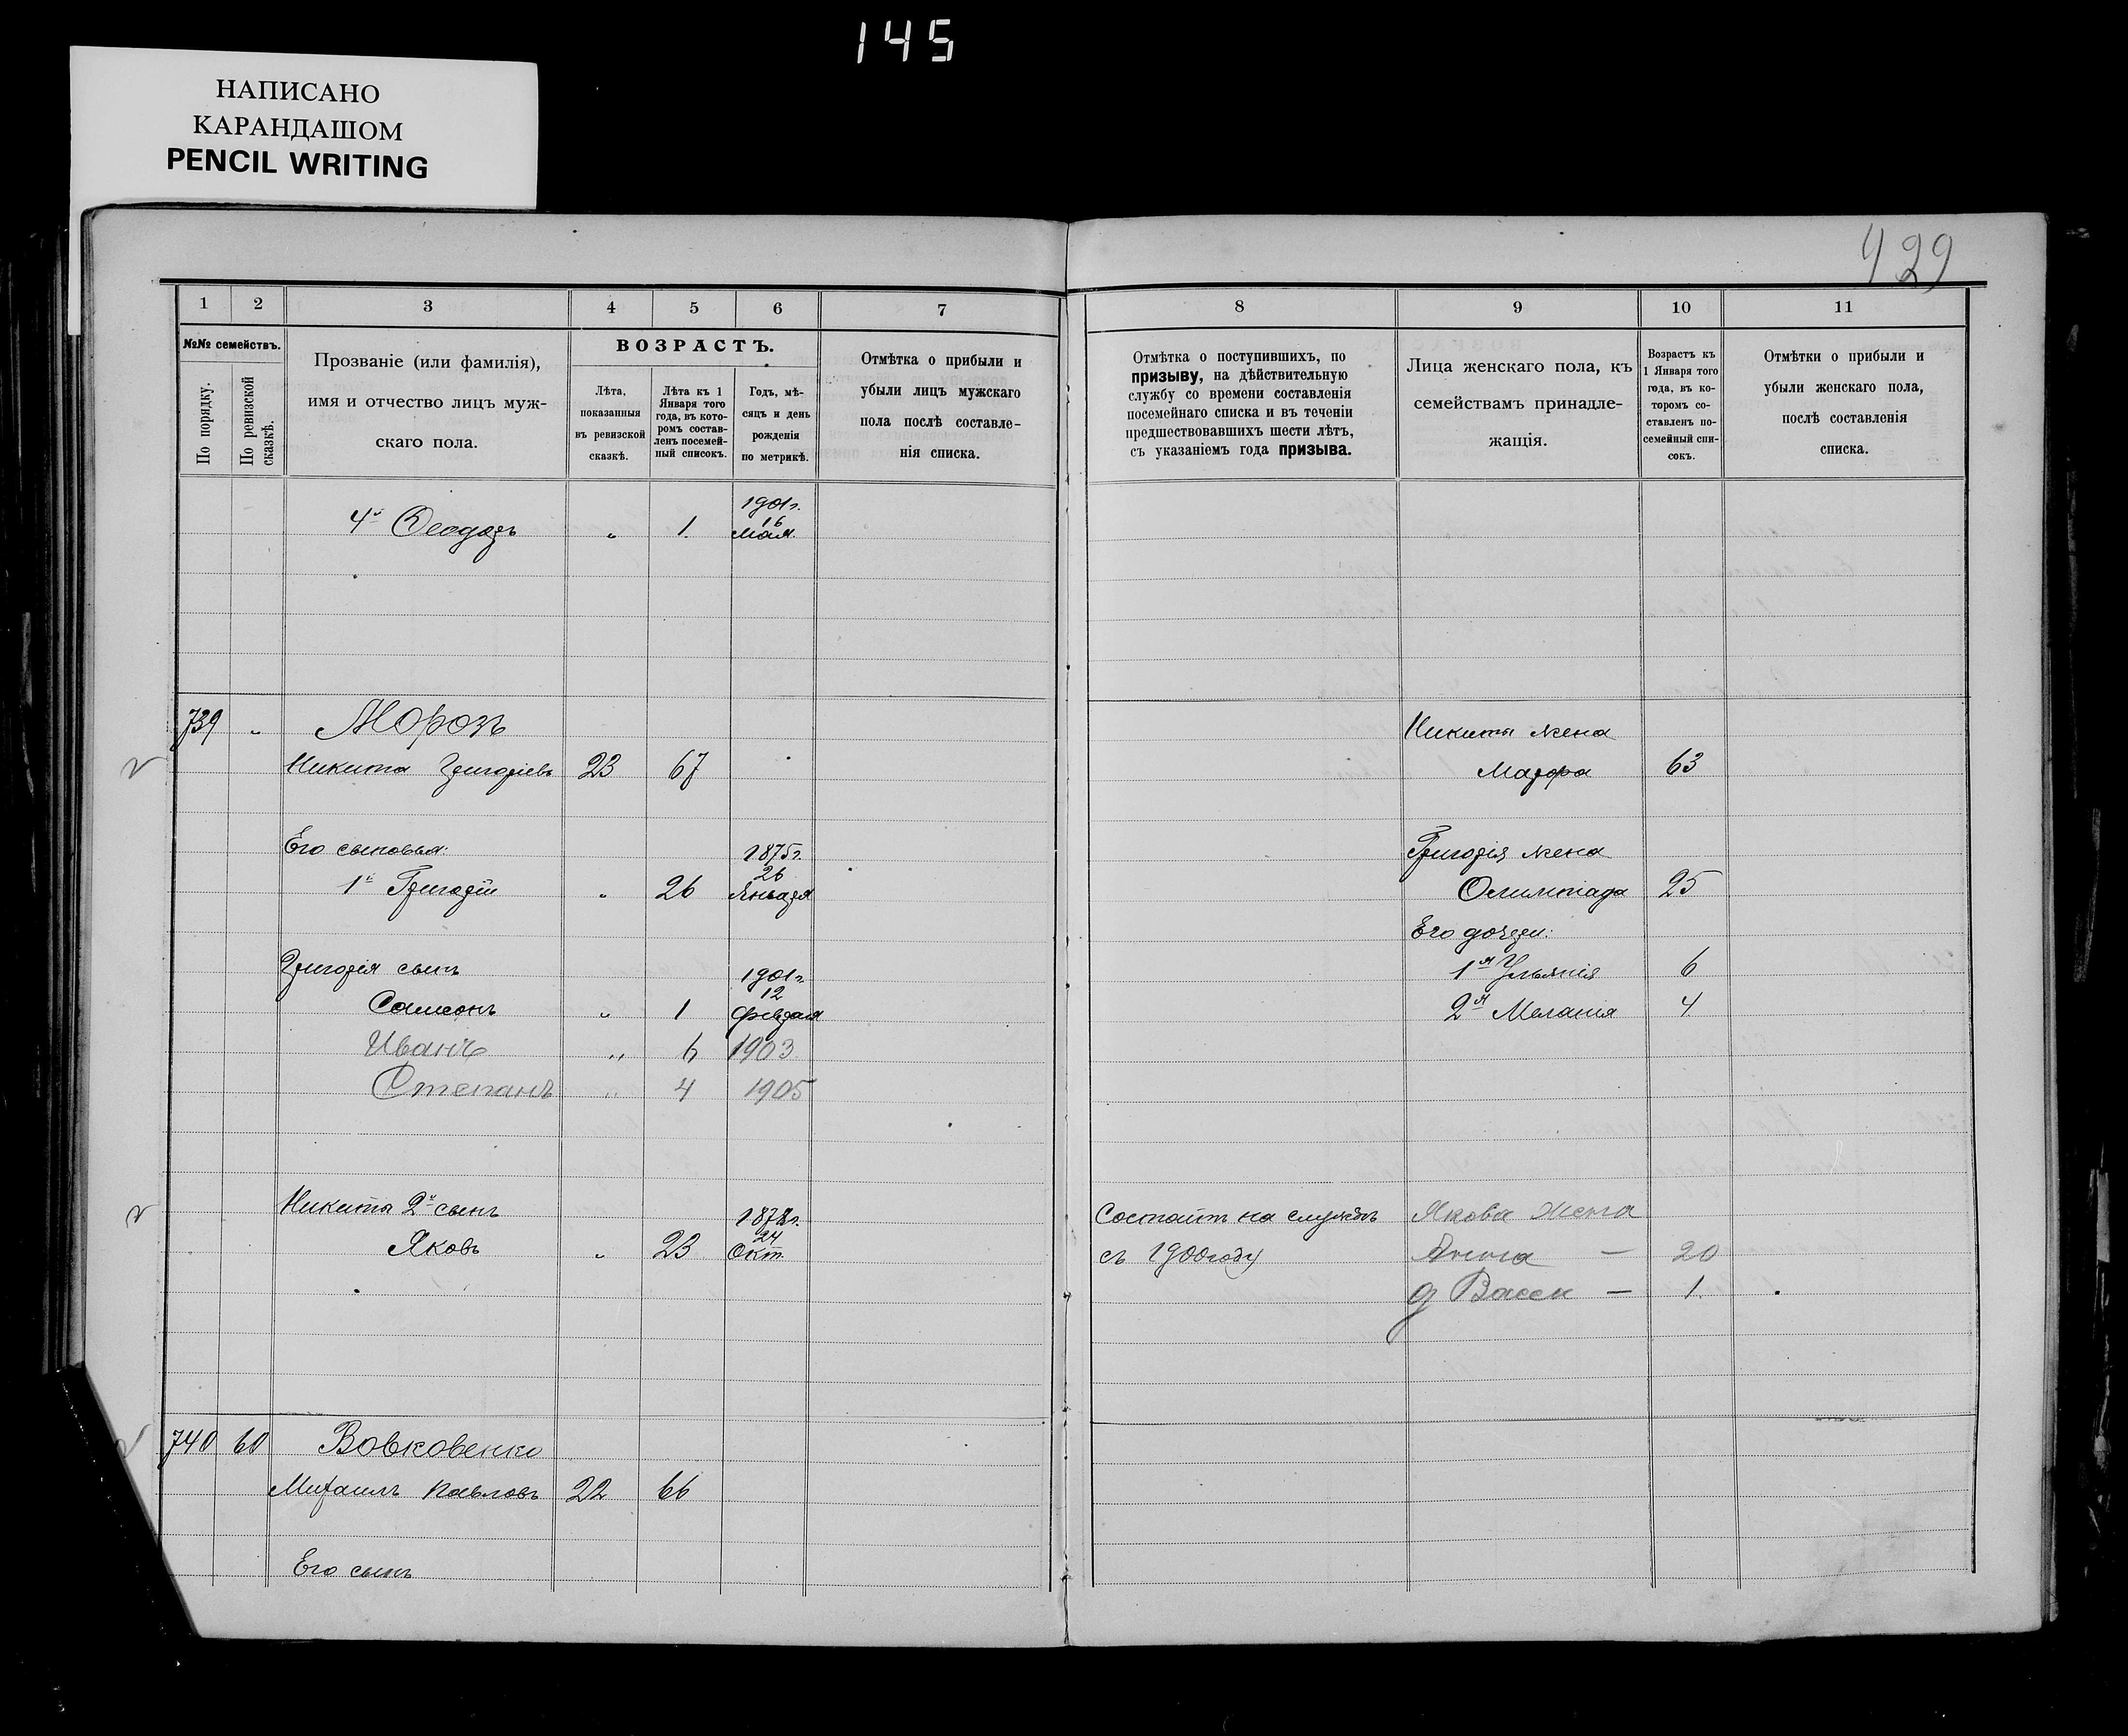 145
НАПИСАНО
КАРАНДАШОМ
PENCIL WRITING
429
1 2 3 4 5 6 7 8 9 10 11
№№ семействъ.
По порядку.
По ревизской сказкѣ.
Прозваніе (или фамилія),
имя и отчество лицъ муж-
скаго пола.
ВОЗРАСТЪ.
Лѣта,
показанныя
въ ревизской
сказкѣ.
Лѣта къ 1
Января того
года, въ кото-
ромъ состав-
ленъ посемей-
ный списокъ.
Годъ, мѣ-
сяцъ и день
рожденія
по метрикѣ.
Отмѣтка о прибыли и
убыли лицъ мужскаго
пола послѣ составле-
нія списка.
Отмѣтка о поступившихъ, по
призыву, на дѣйствительную
службу со времени составленія
посемейнаго списка и въ теченіи
предшествовавшихъ шести лѣтъ,
съ указаніемъ года призыва.
Лица женскаго пола, къ
семействамъ принадле-
жащія.
Возрастъ къ
1 Января того
года, въ ко-
торомъ со-
ставленъ по-
семейный спи-
сокъ.
Отмѣтки о прибыли и
убыли женскаго пола,
послѣ составленія
списка.
1901 г.
16
4й Ѳеодоръ „ 1 Мая
739 „ Морозъ Никиты жена
Никита Григоріевъ 23 67 Мавра 63
Его сыновья: 1875 г. Григорія жена
26
1й Григорій „ 26 Января Олимпіада 25
Его дочери:
Григорія сынъ 1901 г. 1я Ульянія 6
12
Самсонъ „ 1 февраля 2я Меланія 4
Иванъ „ 6 1903
Степанъ „ 4 1905
Никиты 2й сынъ 1878 г. Состоитъ на службѣ Якова Жена
24
Яковъ „ 23 Окт. съ 1900 году Анна — 20
д Васса — 1
740 60 Вовковенко
Михаилъ Павловъ 22 66
Его сынъ